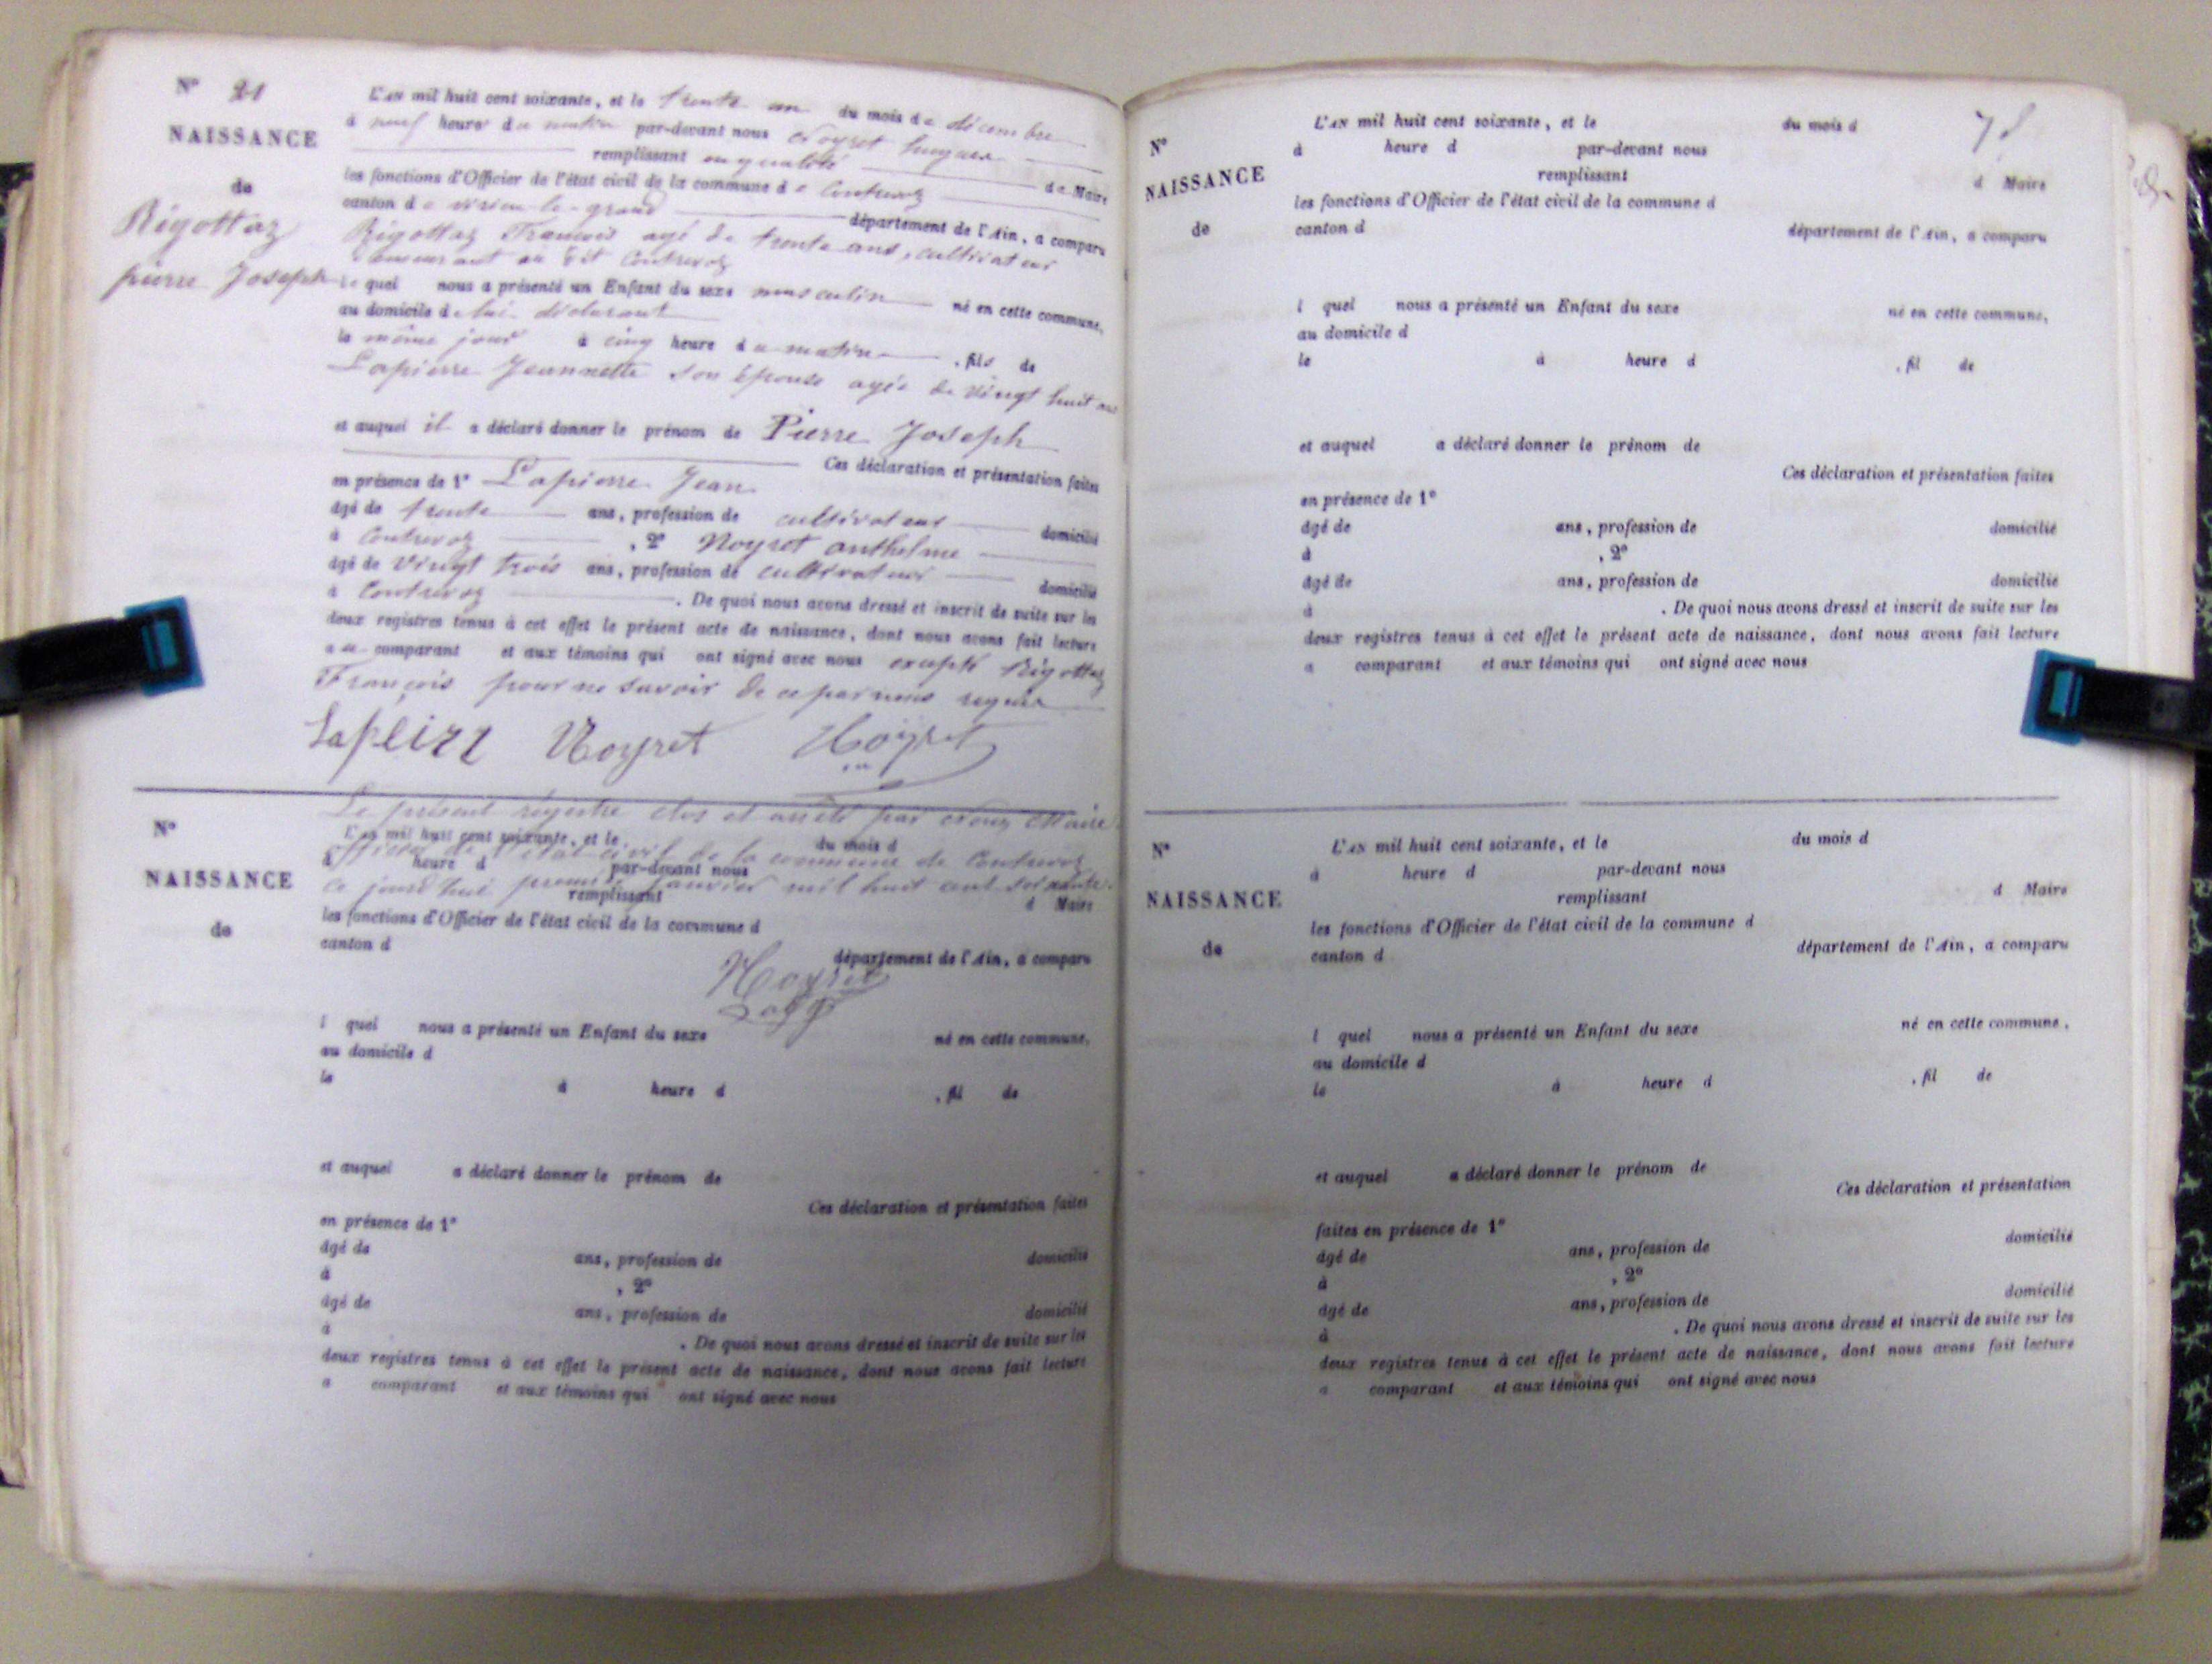 N° 21
NAISSANCE
de
Rigottaz
pierre Joseph
L'AN mil huit cent soixante, et le trente un du mois de décembre
à neuf heure du matin par-devant nous Noyret hugues
remplissant en qualité de Maire
les fonctions d'Officier de l'état civil de la commune de Contrevoz
canton de virieu-le-grand département de l'Ain, a comparu
Rigottaz François agé de trente ans, cultivateur
demeurant au dit Contrevoz
le quel nous a présenté un Enfant du sexe masculin né en cette commune,
au domicile de lui déclarant
le même jour à cinq heure du matin , fils de
Lapierre Jeannette son épouse agée de vingt huit ans
et auquel il a déclaré donner le prénom de Pierre Joseph
Ces déclaration et présentation faites
en présence de 1° Lapierre Jean
âgé de trente ans, profession de cultivateur domicilié
à Contrevoz , 2° Noyret anthelme
âgé de vingt trois ans, profession de cultivateur domicilié
à Contrevoz . De quoi nous avons dressé et inscrit de suite sur les
deux registres tenus à cet effet le présent acte de naissance, dont nous avons fait lecture
au comparant et aux témoins qui ont signé avec nous excepté Rigottaz
François pour ne savoir de ce par nous requis
Lapeirr Noyret Noyret
Le présent régistre clos et arrêté par nous Maire
officier de l'état-civil de la commune de Contrevoz
ce jourd'hui premier janvier mil huit cent soixante
Noyret
N°
NAISSANCE
de
L'AN mil huit cent soixante, et le du mois d
à heure d par-devant nous
remplissant d Maire
les fonctions d'Officier de l'état civil de la commune d
canton d département de l'Ain, a comparu
l quel nous a présenté un Enfant du sexe né en cette commune,
au domicile d
le à heure d , fil de
et auquel a déclaré donner le prénom de
Ces déclaration et présentation faites
en présence de 1°
âgé de ans, profession de domicilié
à , 2°
âgé de ans, profession de domicilié
à . De quoi nous avons dressé et inscrit de suite sur les
deux registres tenus à cet effet le présent acte de naissance, dont nous avons fait lecture
a comparant et aux témoins qui ont signé avec nous
N°
NAISSANCE
de
L'AN mil huit cent soixante, et le du mois d
à heure d par-devant nous
remplissant d Maire
les fonctions d'Officier de l'état civil de la commune d
canton d département de l'Ain, a comparu
l quel nous a présenté un Enfant du sexe né en cette commune,
au domicile d
le à heure d , fil de
et auquel a déclaré donner le prénom de
Ces déclaration et présentation faites
en présence de 1°
âgé de ans, profession de domicilié
à , 2°
âgé de ans, profession de domicilié
à . De quoi nous avons dressé et inscrit de suite sur les
deux registres tenus à cet effet le présent acte de naissance, dont nous avons fait lecture
a comparant et aux témoins qui ont signé avec nous
N°
NAISSANCE
de
L'AN mil huit cent soixante, et le du mois d
à heure d par-devant nous
remplissant d Maire
les fonctions d'Officier de l'état civil de la commune d
canton d département de l'Ain, a comparu
l quel nous a présenté un Enfant du sexe né en cette commune,
au domicile d
le à heure d , fil de
et auquel a déclaré donner le prénom de
Ces déclaration et présentation
faites en présence de 1°
âgé de ans, profession de domicilié
à , 2°
âgé de ans, profession de domicilié
à . De quoi nous avons dressé et inscrit de suite sur les
deux registres tenus à cet effet le présent acte de naissance, dont nous avons fait lecture
a comparant et aux témoins qui ont signé avec nous